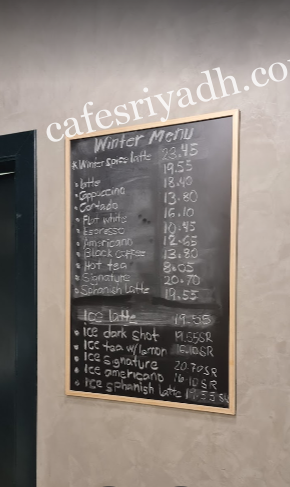 cafesriyadh.co
Winter Menu
* Winter spice latte 23.45
• latte 19.55
• Cappuccino 18.40
• Cortado 13.80
• Flat white 16.10
• Espresso 10.45
• Americano 12.65
• Black Coffee 13.80
• Hot tea 8.05
• Signature 20.70
• Sphanish latte 19.55
• Ice latte 19.55
• Ice dark shot 19.55SR
• Ice tea w/lemon 16.10SR
• Ice signature 20.70SR
• Ice americano 16.10SR
• Ice sphanish latte 19.55SR